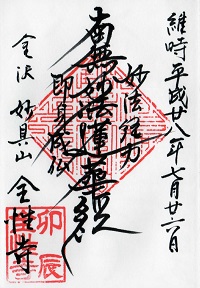 維時平成廿八年七月廿六日
妙法経力
南無妙法蓮華経
即身成仏
金沢 妙具山 全性寺
卯辰